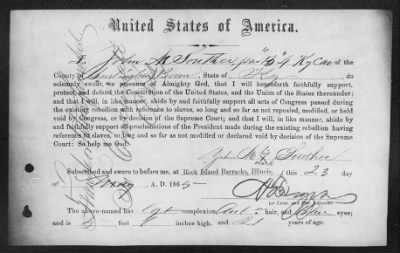 United States of America.
I, John M. Souther, 4 Ky Cav of the
County Boone, State of Ky, do
solemnly swear, in presence of Almighty God, that I will henceforth faithfully support,
protect, and defend the Constitution of the United States, and the Union of the States thereunder;
and that I will, in like manner, abide by and faithfully support all acts of Congress passed during
the existing rebellion with reference to slaves, so long and so far as not repealed, modified, or held
void by Congress, or by decision of the Supreme Court; and that I will, in like manner, abide by
and faithfully support all proclamations of the President made during the existing rebellion having
reference to slaves, so long and so far as not modified or declared void by decision of the Supreme
Court: So help me God.
John M. Souther
mark
Subscribed and sworn to before me, at Rock Island Barracks, Illinois, this 23
day A. D. 1865
The above has Lgt complexion, hair, and Blue eyes;
and is feet inches high, and 21 years of age.